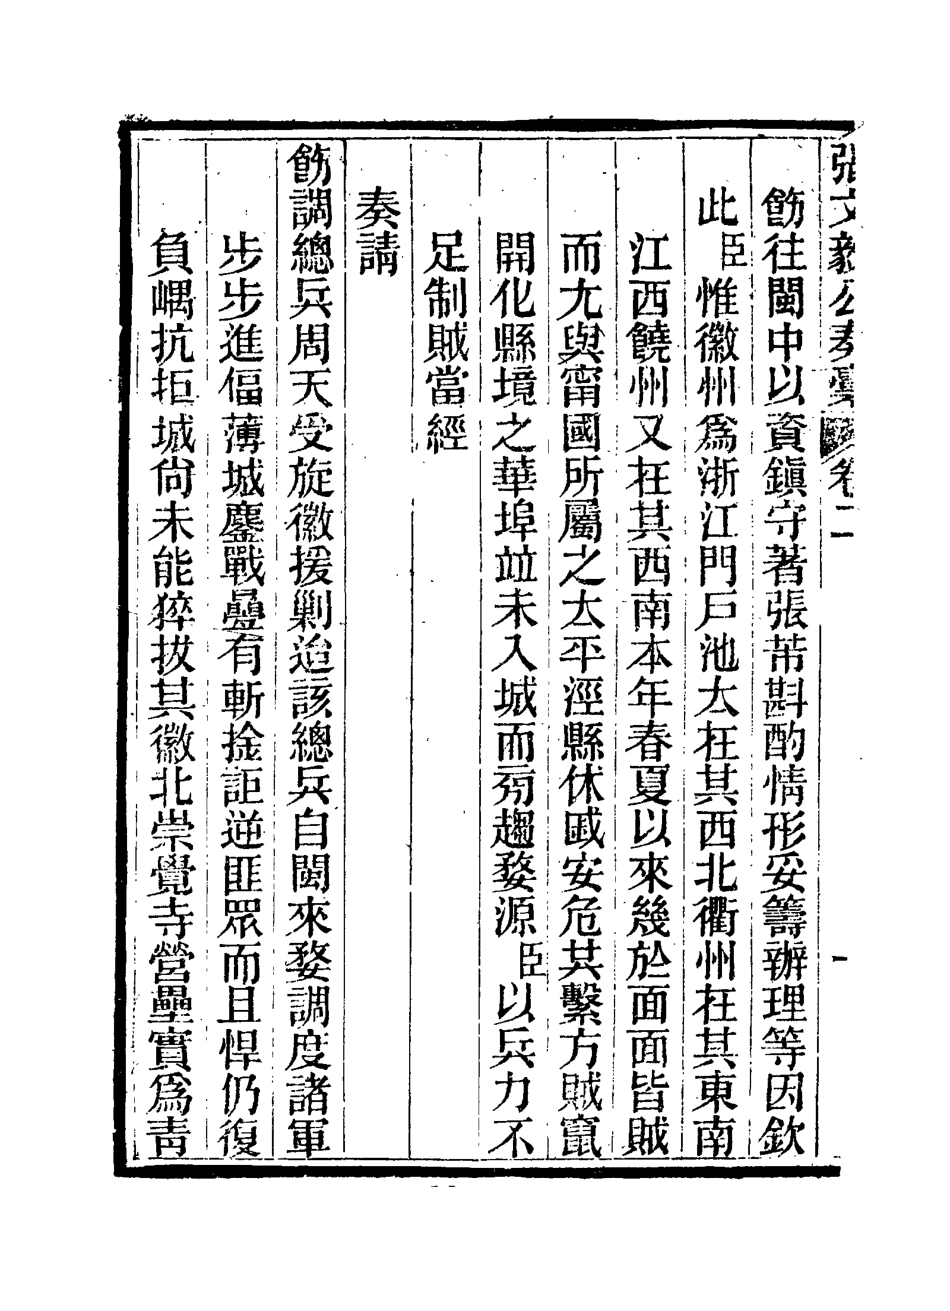 張文毅公奏稾卷二
飭往閩中以資鎭守著張芾斟酌情形妥籌辦理等因欽
此臣惟徽州爲浙江門戸池太在其西北衢州在其東南
江西饒州又在其西南本年春夏以來幾於面面皆賊
而尤與甯國所屬之太平涇縣休戚安危其繫方賊竄
開化縣境之華埠竝未入城而旁趨婺源臣以兵力不
足制賊當經
奏請
飭調總兵周天受旋徽援剿迨該總兵自閩來婺調度諸軍
步步進偪薄城鏖戰疊有斬捦詎逆匪眾而且悍仍復
負嵎抗拒城尙未能猝拔其徽北崇覺寺營壘實爲靑
一